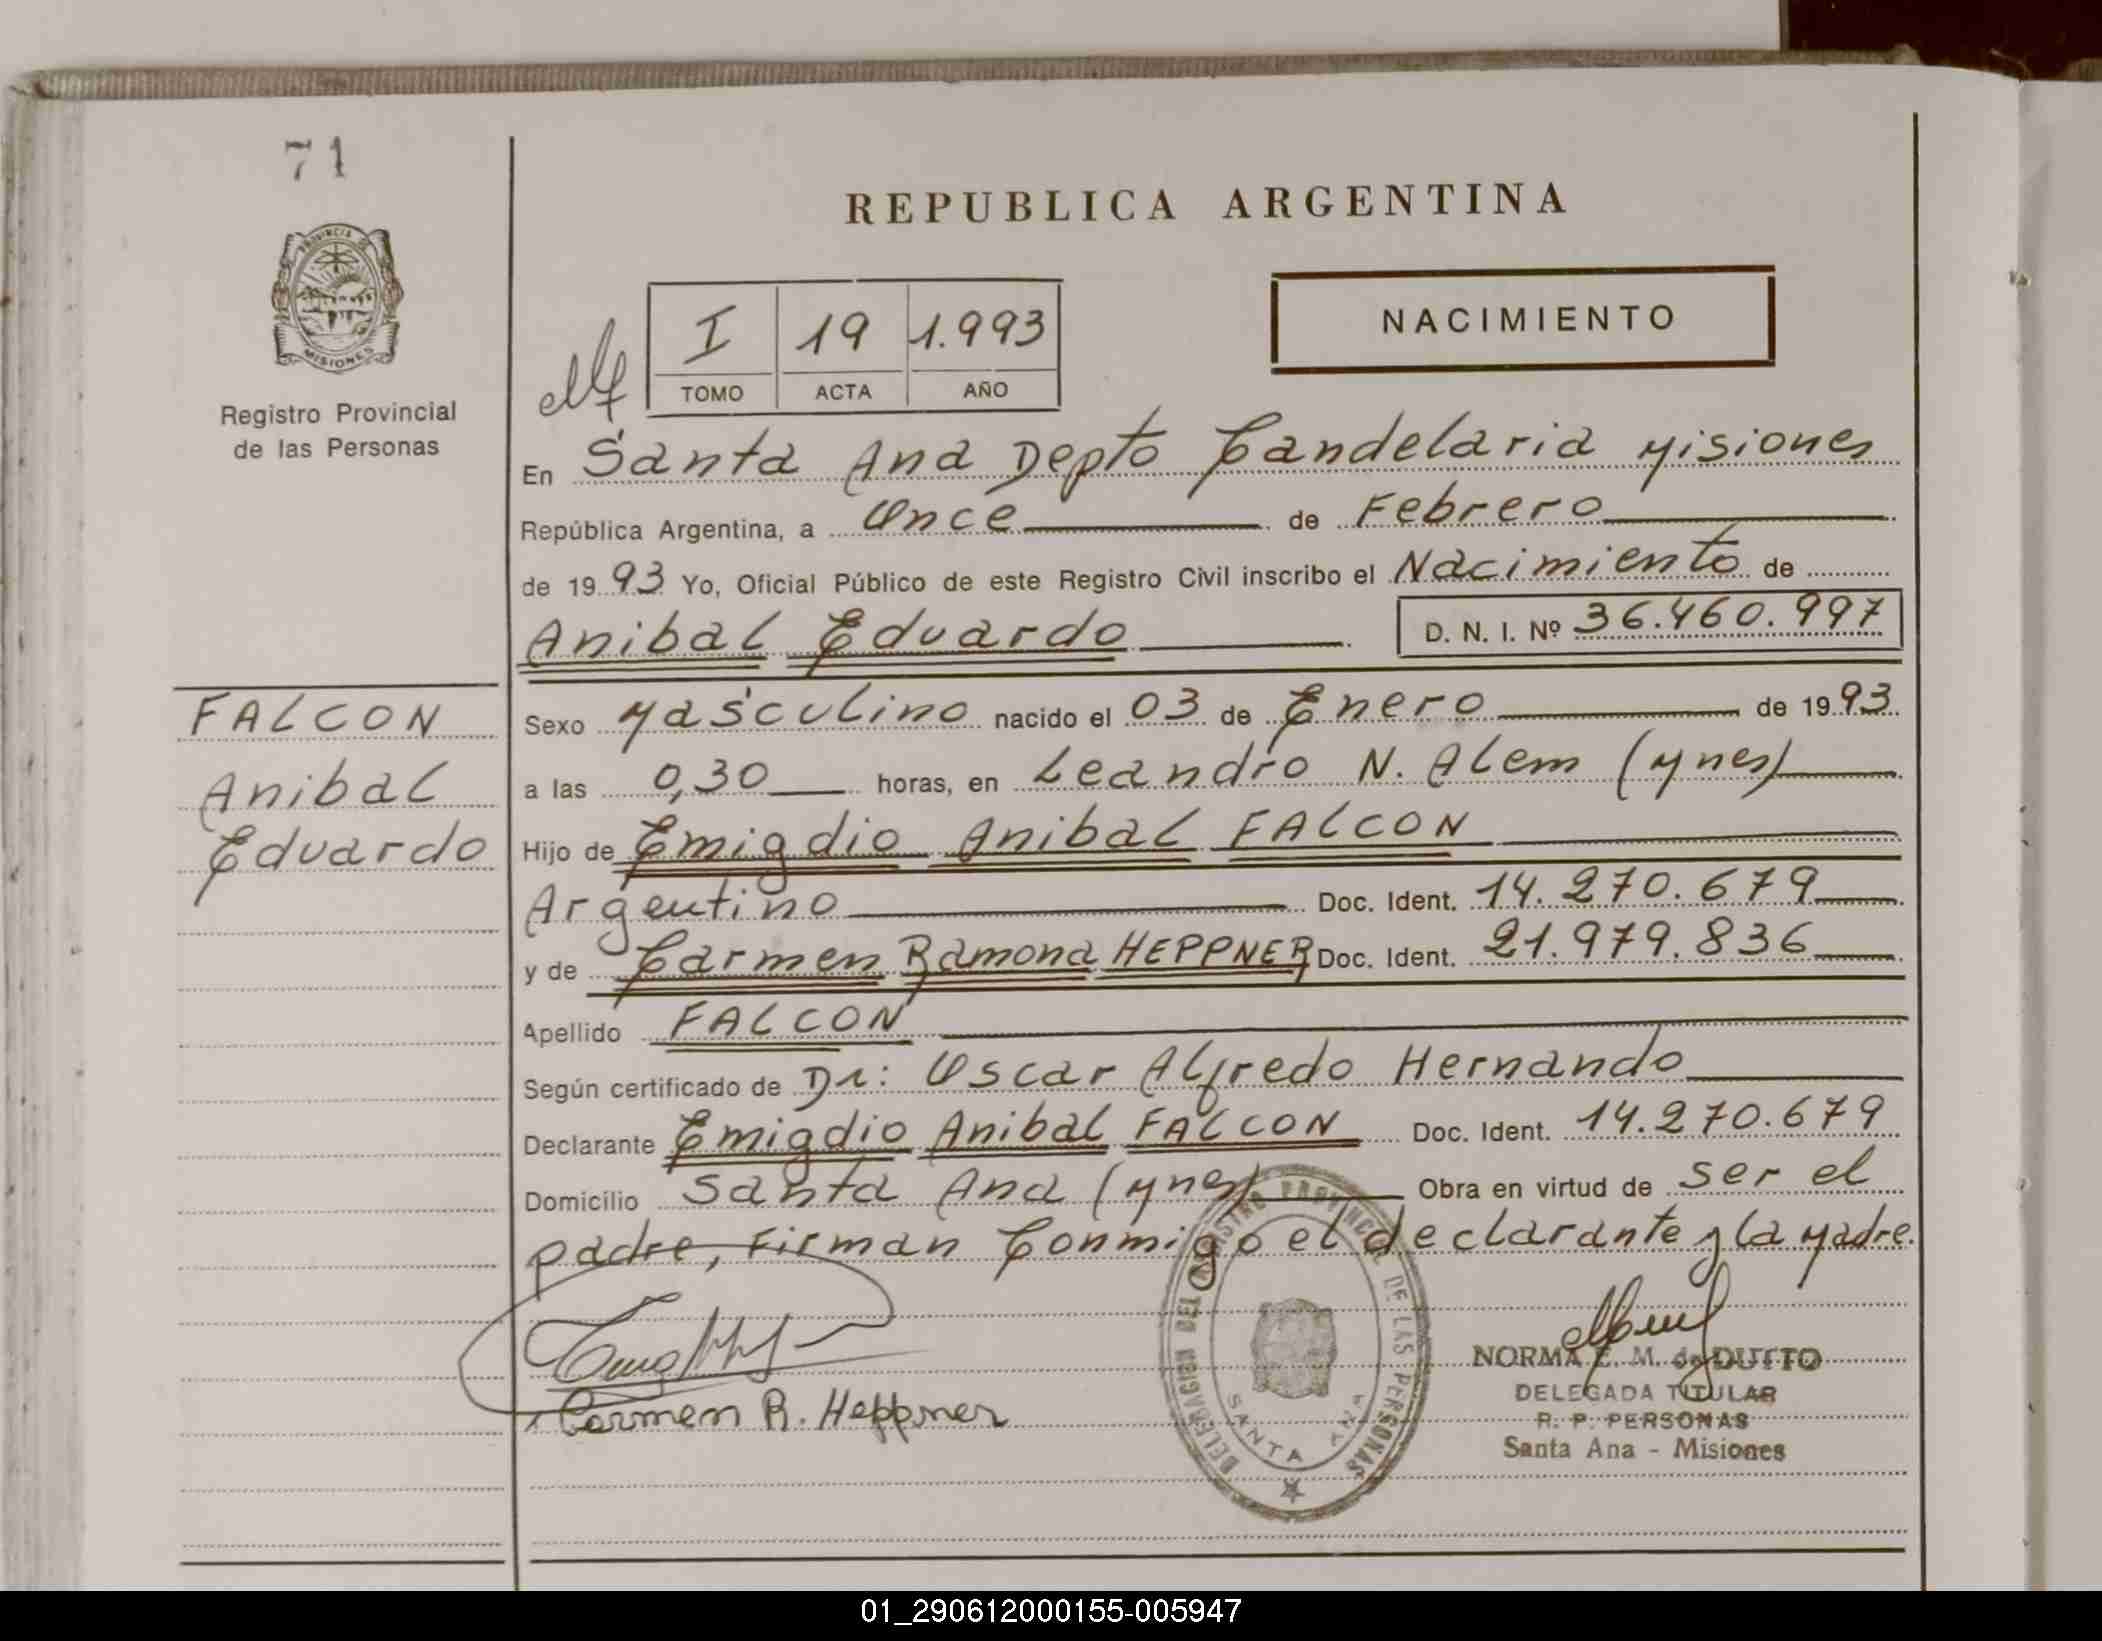 71
REPUBLICA ARGENTINA
PROVINCIA DE
MISIONES
Registro Provincial
de las Personas
I 19 1.993
TOMO ACTA AÑO
NACIMIENTO
En Santa Ana Depto Candelaria Misiones
República Argentina, a Once de Febrero
de 1993 Yo, Oficial Público de este Registro Civil inscribo el Nacimiento de
Anibal Eduardo D. N. I. Nº 36.460.997
FALCON
Anibal
Eduardo
Sexo Masculino nacido el 03 de Enero de 1993
a las 0,30 horas, en Leandro N. Alem (Mnes)
Hijo de Emigdio Anibal FALCON
Argentino Doc. Ident. 14.270.679
y de Carmen Ramona HEPPNER Doc. Ident. 21.979.836
Apellido FALCON
Según certificado de Dr: Oscar Alfredo Hernando
Declarante Emigdio Anibal FALCON Doc. Ident. 14.270.679
Domicilio Santa Ana (Mnes) Obra en virtud de ser el
padre, Firman Conmigo el declarante y la Madre.
Carmen R. Heppner
DELEGACION DEL REGISTRO PROVINCIAL DE LAS PERSONAS
SANTA ANA
NORMA E. M. de DUTTO
DELEGADA TITULAR
R. P. PERSONAS
Santa Ana - Misiones
01_290612000155-005947